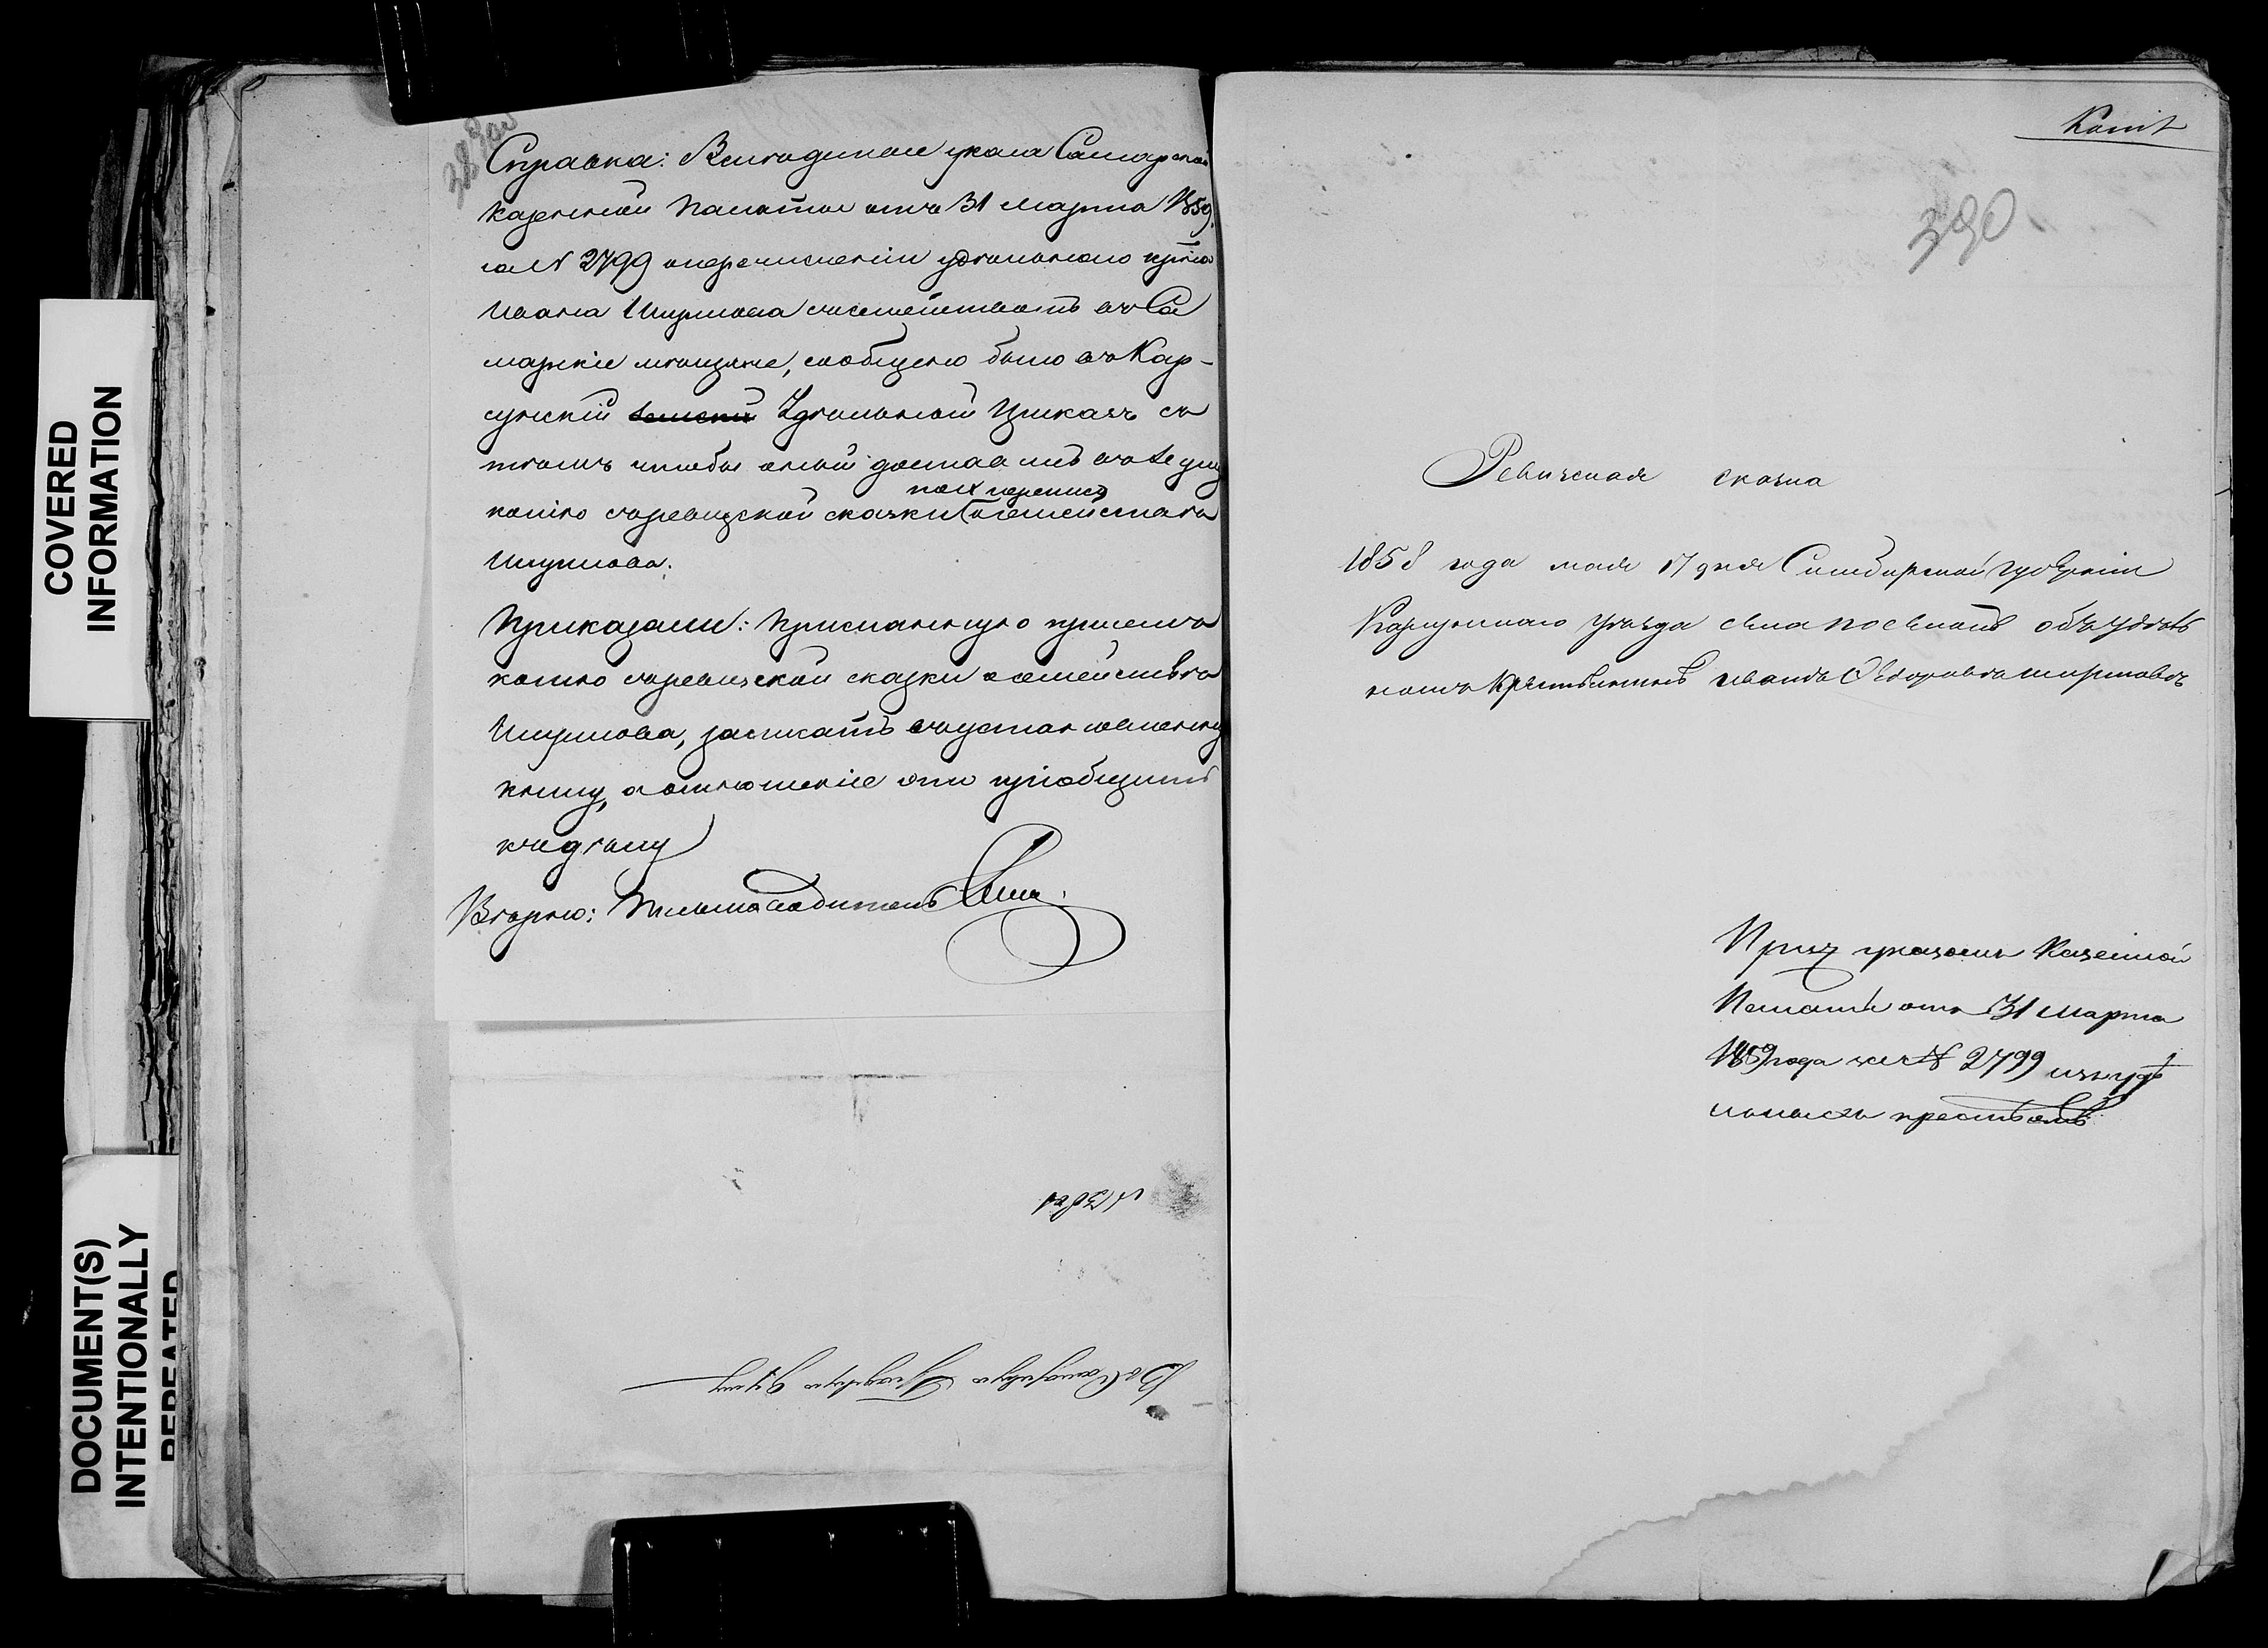 COVERED
INFORMATION
DOCUMENT(S)
INTENTIONALLY
REPEATED
Справка: Вслѣдствіе указа Самарской
Казенной Палаты отъ 31 Марта 1859 г.
за № 2799 о перечисленіи удѣльнаго кр‑на
Ивана съ семействомъ въ Са
марскіе мѣщане, сообщено было въ Кар-
сунскій Удѣльный Приказъ съ
тѣмъ чтобы оный доставилъ въ Думу
по X переписи
копію съ ревизской сказки о семействѣ
Приказали: Присланную при семъ
копію съ ревизской сказки о семействѣ
записать въ установленную
книгу, а отношеніе это пріобщить
къ дѣлу
Вѣрно: Письмоводитель
Копія
390
Ревизская сказка
1858 года мая 17 дня Симбирской губерніи
Карсунскаго уѣзда села объ удѣль
номъ крестьянинѣ Иванѣ Ѳедоровѣ
Прич указомъ Казенной
Палаты отъ 31 Марта
1859 года за № 2799 изъ удѣ
льныхъ крестьянъ